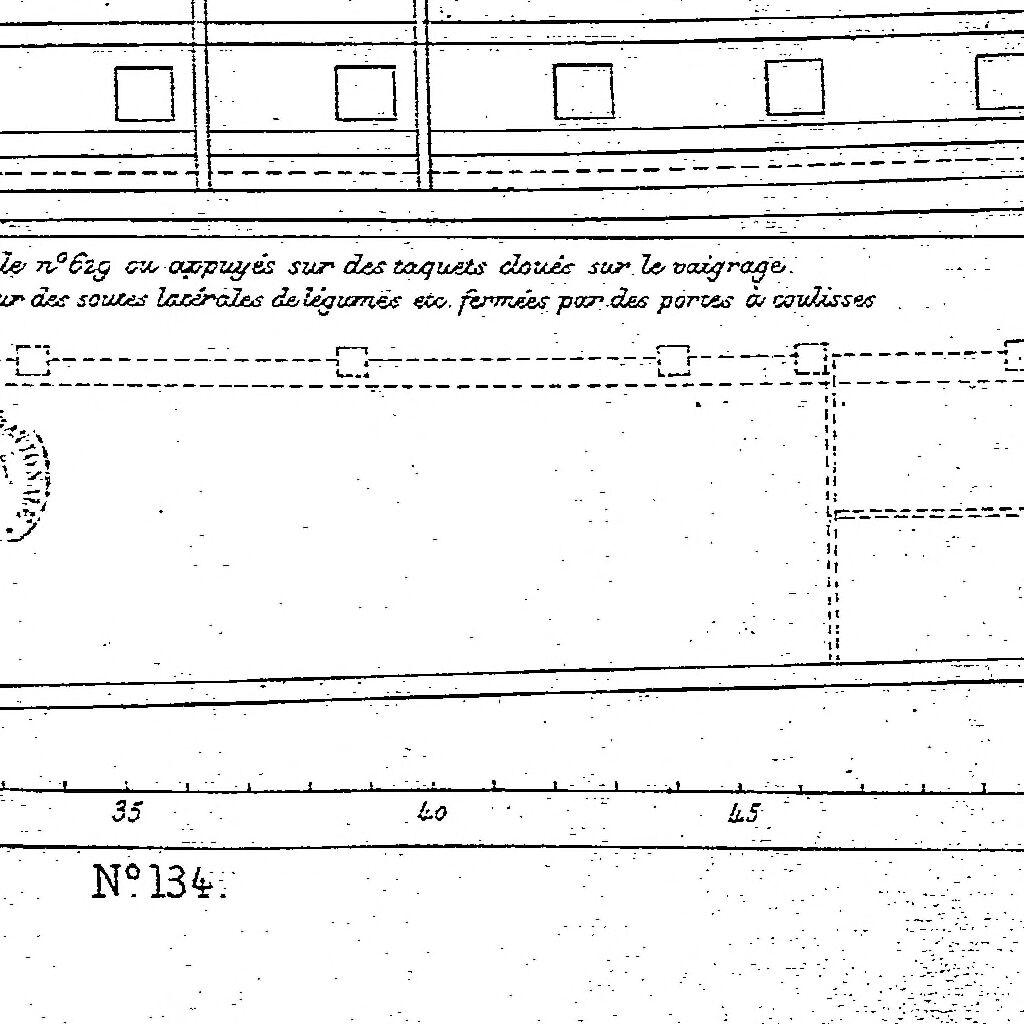 le nº 629 ou appuyés sur des taquets cloués sur le vaigrage.
ur des soutes latérales de légumes etc. fermées par des portes à coulisses
35 40 45
Nº 134.